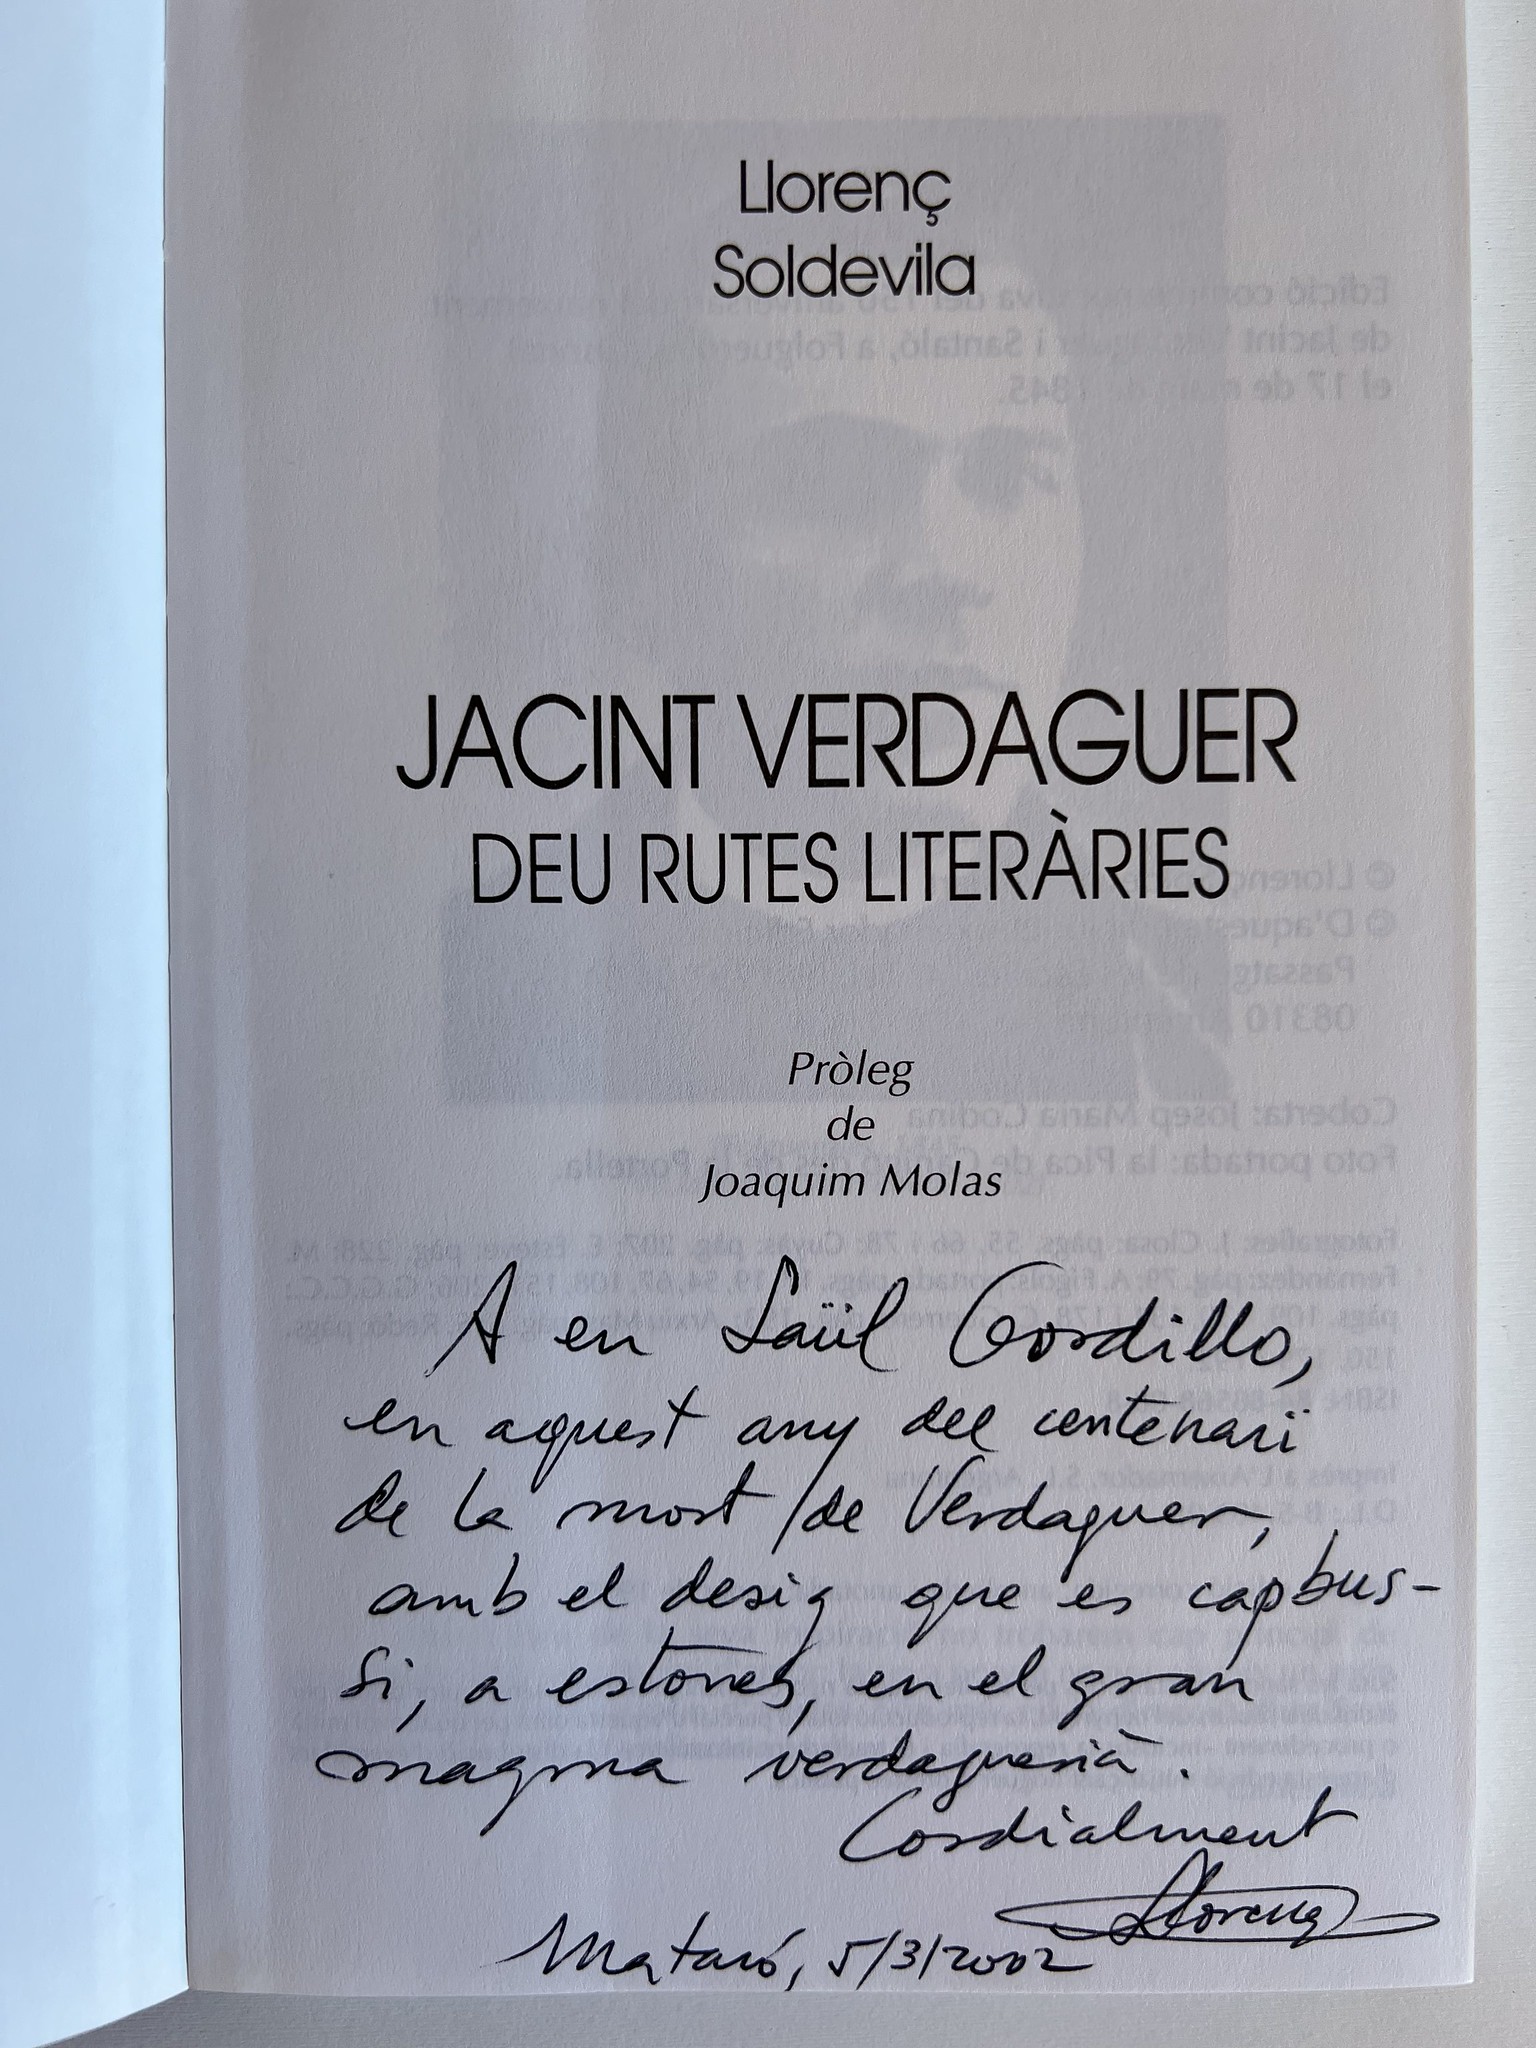 Llorenç
Soldevila
JACINT VERDAGUER
DEU RUTES LITERÀRIES
Pròleg
de
Joaquim Molas
A en Saül Gordillo,
en aquest any del centenari
de la mort de Verdaguer,
amb el desig que es capbus-
si, a estones, en el gran
magma verdaguerià.
Cordialment
Llorenç
Mataró, 5/3/2002